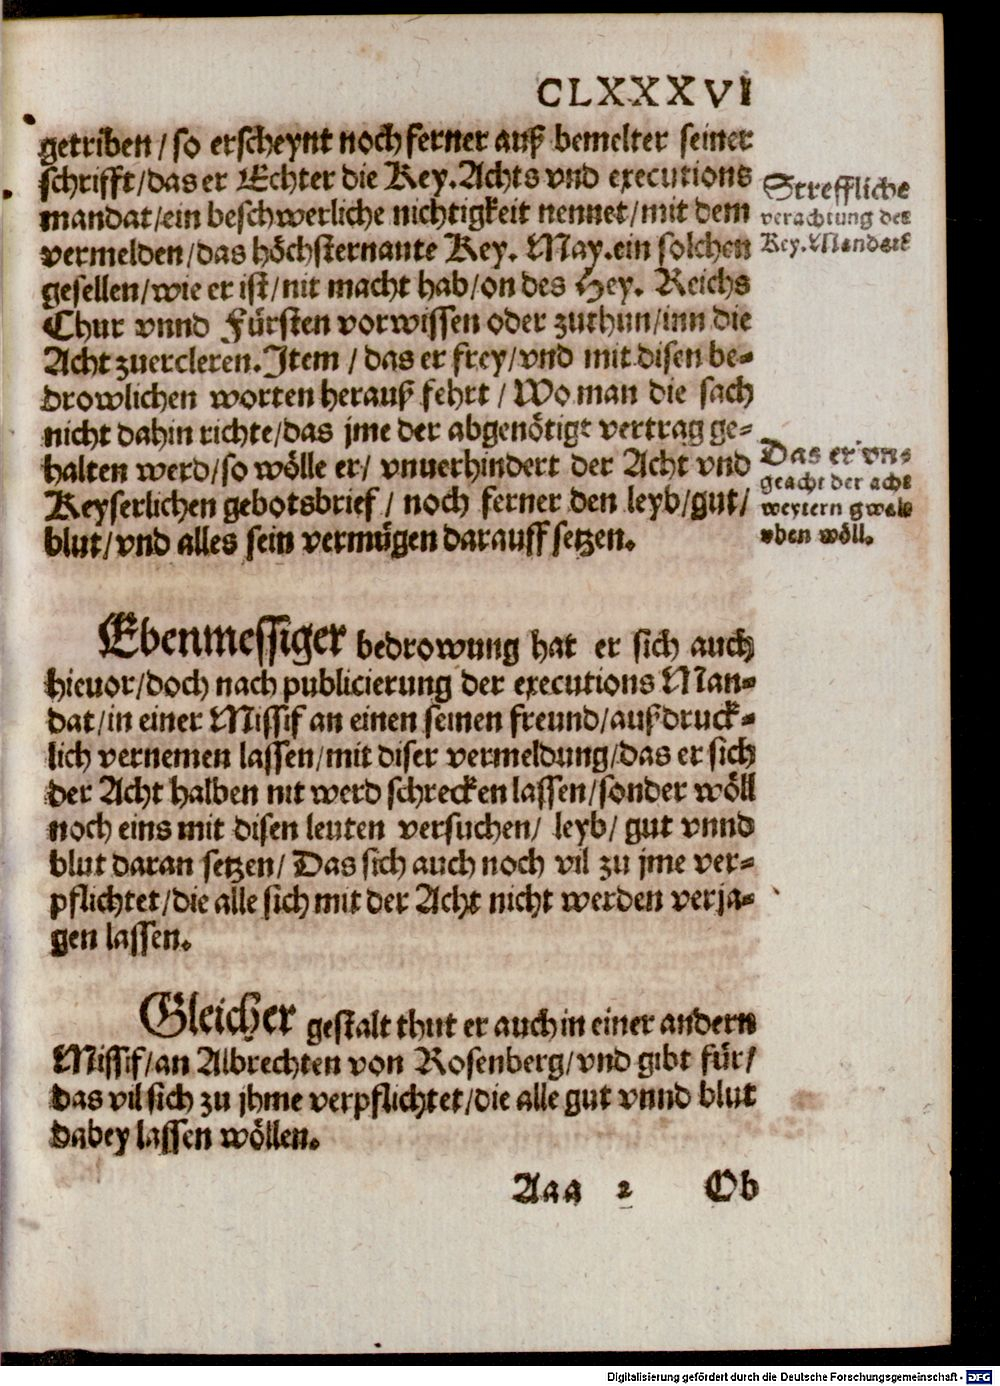 CLXXXVI
getriben/so erscheynt noch ferner auß bemelter seiner
schrifft/das er Echter die Key. Achts vnd executions
mandat/ein beschwerliche nichtigkeit nennet/mit dem
vermelden/das höchsternante Key. May. ein solchen
gesellen/wie er ist/nit macht hab/on des Hey. Reichs
Chur vnnd Fürsten vorwissen oder zuthun/inn die
Acht zuercleren. Item / das er frey/vnd mit disen be-
drowlichen worten herauß fehrt / Wo man die sach
nicht dahin richte/das jme der abgenötigt vertrag ge-
halten werd/so wölle er/ vnuerhindert der Acht vnd
Keyserlichen gebotsbrief / noch ferner den leyb/gut/
blut/vnd alles sein vermügen darauff setzen.
Streffliche
verachtung der
Key. Mandats
Das er vn-
geacht der acht
weytern gwalt
vben wöll.
Ebenmessiger bedrowung hat er sich auch
hieuor/doch nach publicierung der executions Man-
dat/in einer Missif an einen seinen freund/außdruck-
lich vernemen lassen/mit diser vermeldung/das er sich
der Acht halben nit werd schrecken lassen/sonder wöll
noch eins mit disen leuten versuchen/ leyb/ gut vnnd
blut daran setzen/ Das sich auch noch vil zu jme ver-
pflichtet/die alle sich mit der Acht nicht werden verja-
gen lassen.
Gleicher gestalt thut er auch in einer andern
Missif/an Albrechten von Rosenberg/vnd gibt für/
das vil sich zu jhme verpflichtet/die alle gut vnnd blut
dabey lassen wöllen.
Aaa 2 Ob
Digitalisierung gefördert durch die Deutsche Forschungsgemeinschaft - DFG